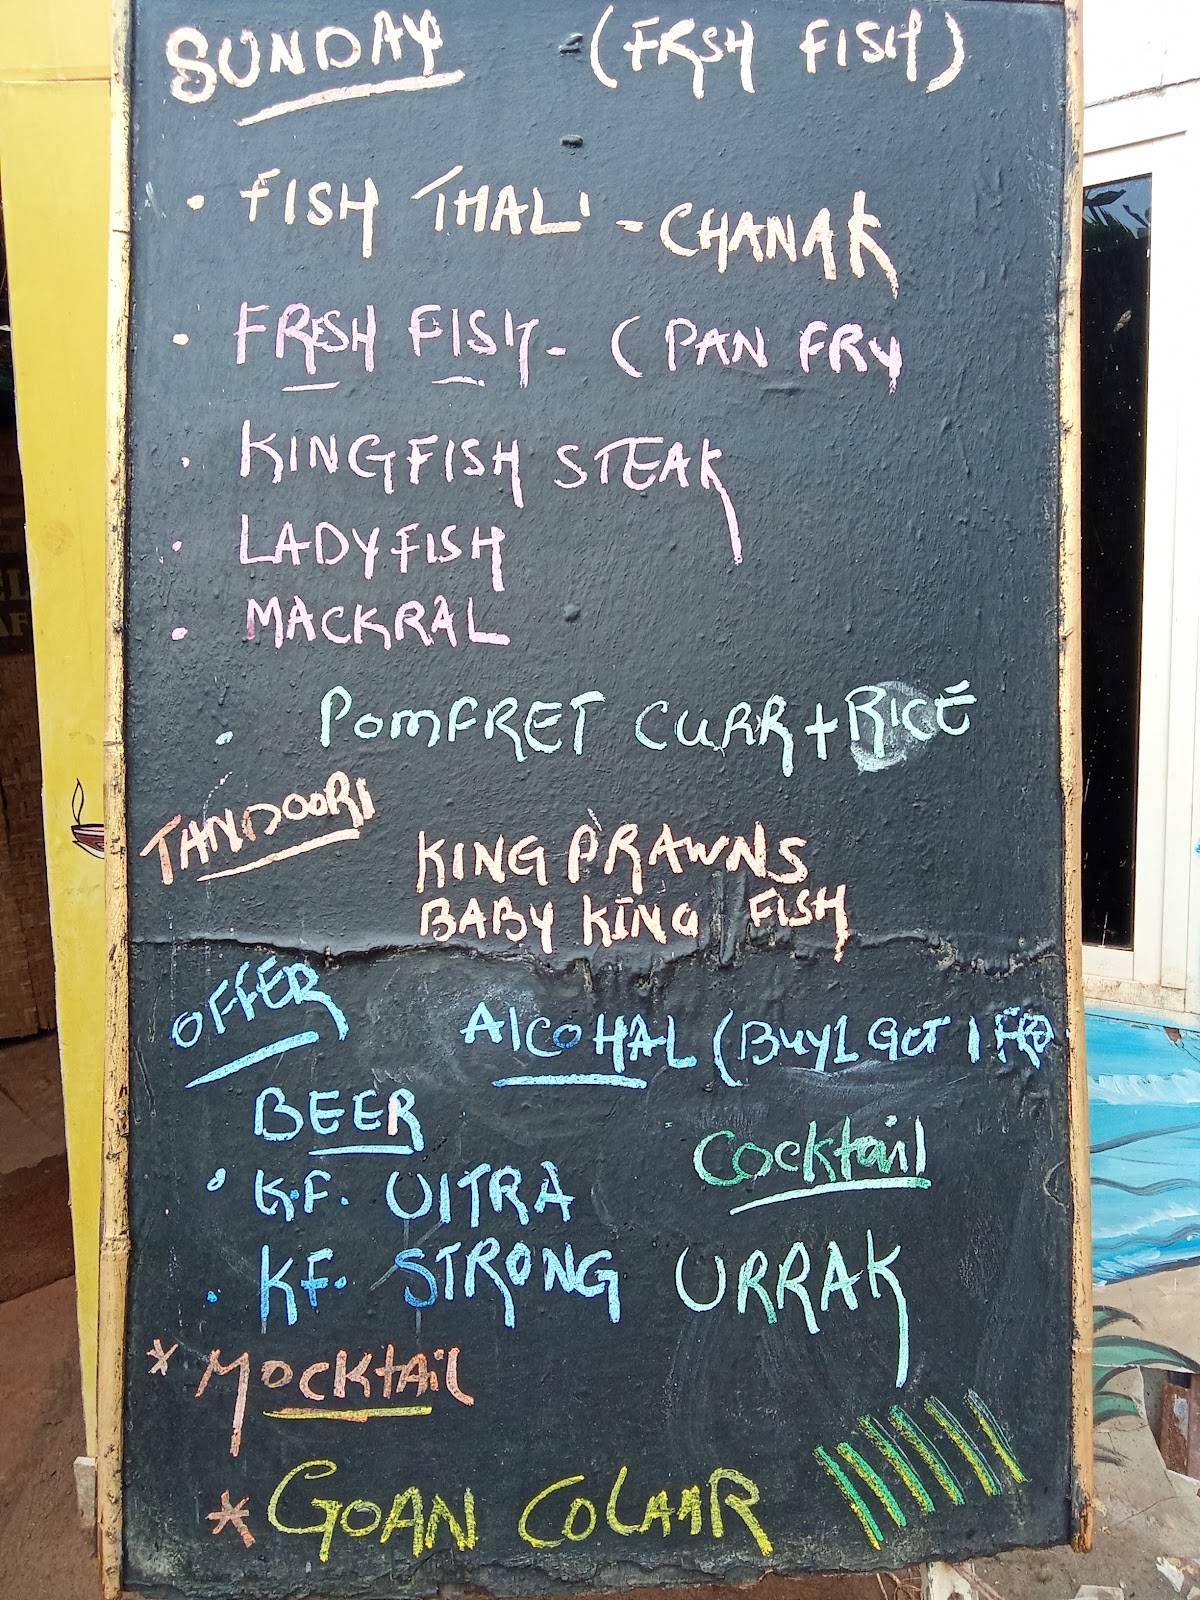 SUNDAY (FRSH FISH)
• FISH THALI - CHANAK
• FRESH FISH - (PAN FRY
• KINGFISH STEAK
• LADYFISH
• MACKRAL
• POMFRET CURR+RICE
TANDOORI
KING PRAWNS
BABY KING FISH
OFFER
AlCOHAL (Buy1 GeT 1
BEER
Cocktail
• K.F. UlTRA
• KF. STRONG
URRAK
* MOCKtAiL
* GOAN COLAAR